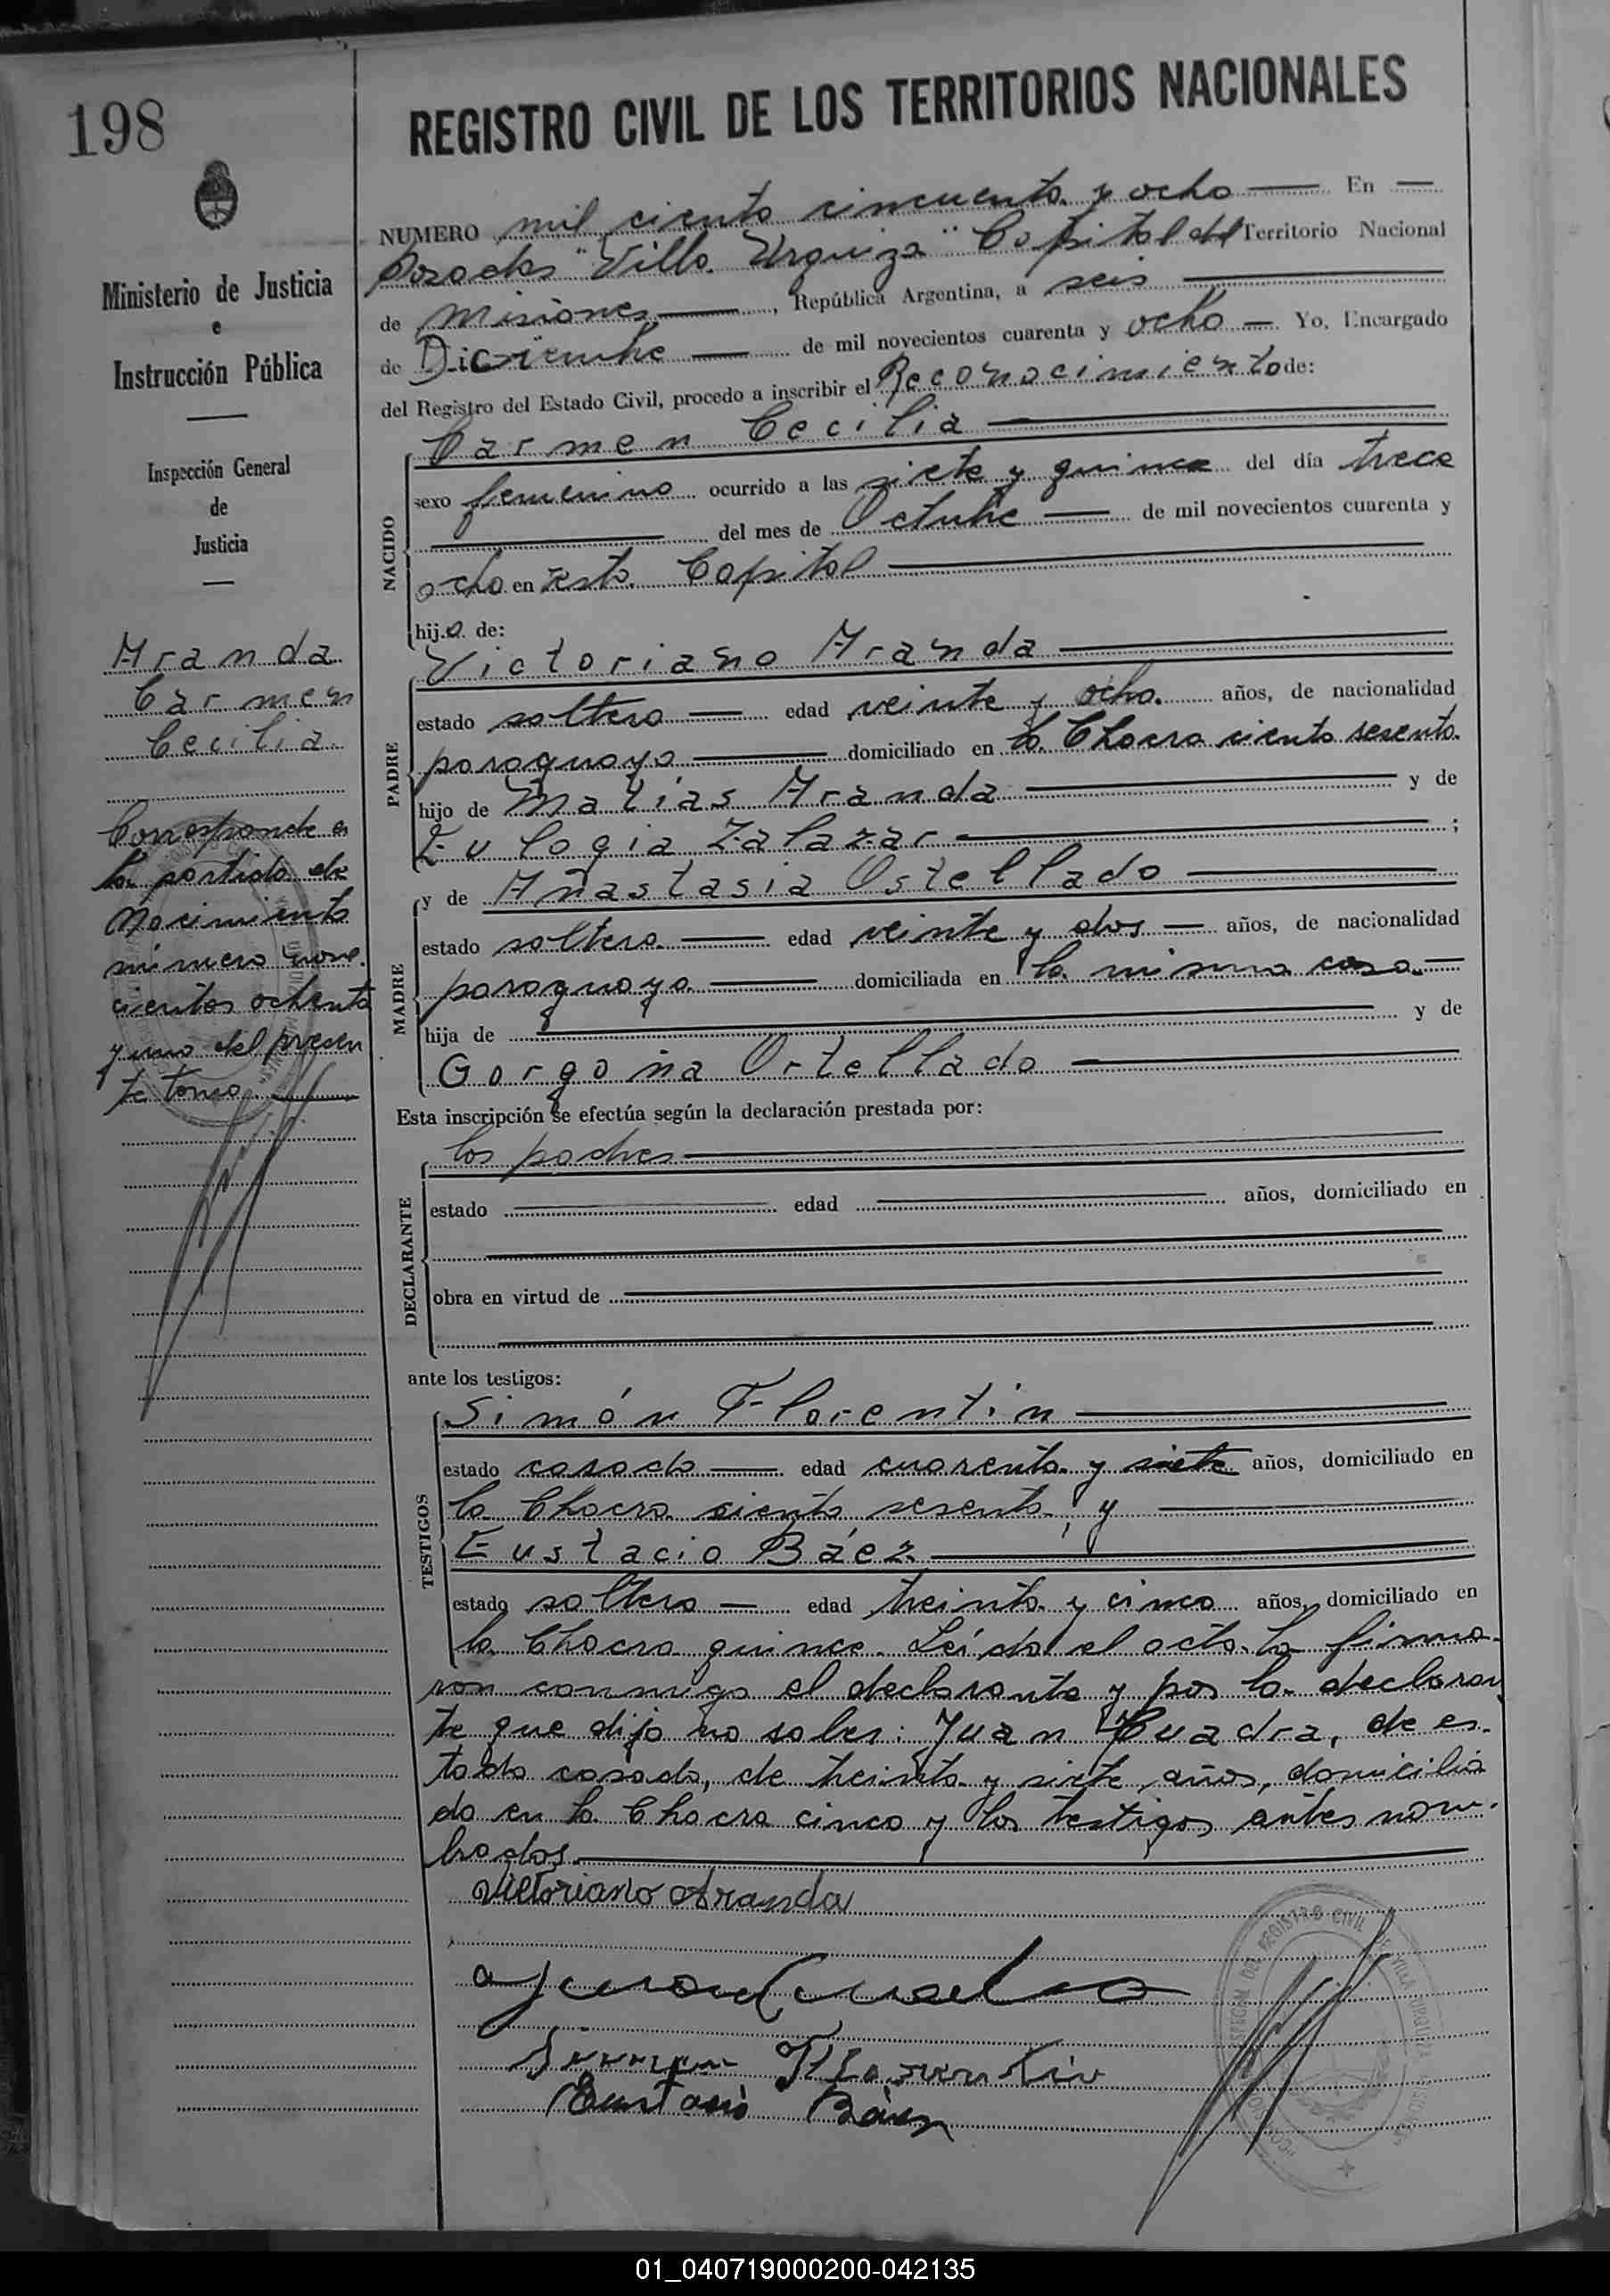 198
REGISTRO CIVIL DE LOS TERRITORIOS NACIONALES
Ministerio de Justicia
e
Instrucción Pública
Inspección General
de
Justicia
Aranda
Carmen
Cecilia
Corresponde a
la partida de
Nacimiento
número nove-
cientos ochenta
y uno del presen
te tomo
NUMERO mil ciento cincuenta y ocho — En —
Posadas "Villa Urquiza" Capital del Territorio Nacional
de Misiones —, República Argentina, a seis
de Diciembre — de mil novecientos cuarenta y ocho — Yo, Encargado
del Registro del Estado Civil, procedo a inscribir el Reconocimiento de:
NACIDO
Carmen Cecilia
sexo femenino ocurrido a las siete y quince del día trece
del mes de Octubre — de mil novecientos cuarenta y
ocho en esta Capital
hija de:
PADRE
Victoriano Aranda
estado soltero — edad veinte y ocho años, de nacionalidad
paraguaya — domiciliado en la Chacra ciento sesenta
hijo de Matías Aranda — y de
Eulogia Zalazar — ;
MADRE
y de Anastasia Ostellado
estado soltera — edad veinte y dos — años, de nacionalidad
paraguaya — domiciliada en la misma casa —
hija de — y de
Gorgonia Ortellado
Esta inscripción se efectúa según la declaración prestada por:
DECLARANTE
los padres
estado — edad — años, domiciliado en
obra en virtud de
ante los testigos:
TESTIGOS
Simón Florentín
estado casado — edad cuarenta y siete años, domiciliado en
la Chacra ciento sesenta, y
Eustacio Báez
estado soltero — edad treinta y cinco años, domiciliado en
la Chacra quince. Leída el acta la firma-
ron conmigo el declarante y por la declaran
te que dijo no saber: Juan Cuadra, de es-
tado casado, de treinta y siete años, domicilia
do en la Chacra cinco y los testigos antes nom-
brados.
Victoriano Aranda
Juan Cuadra
Simon Florentin
Eustacio Báez
REGISTRO CIVIL
VILLA URQUIZA
01_040719000200-042135